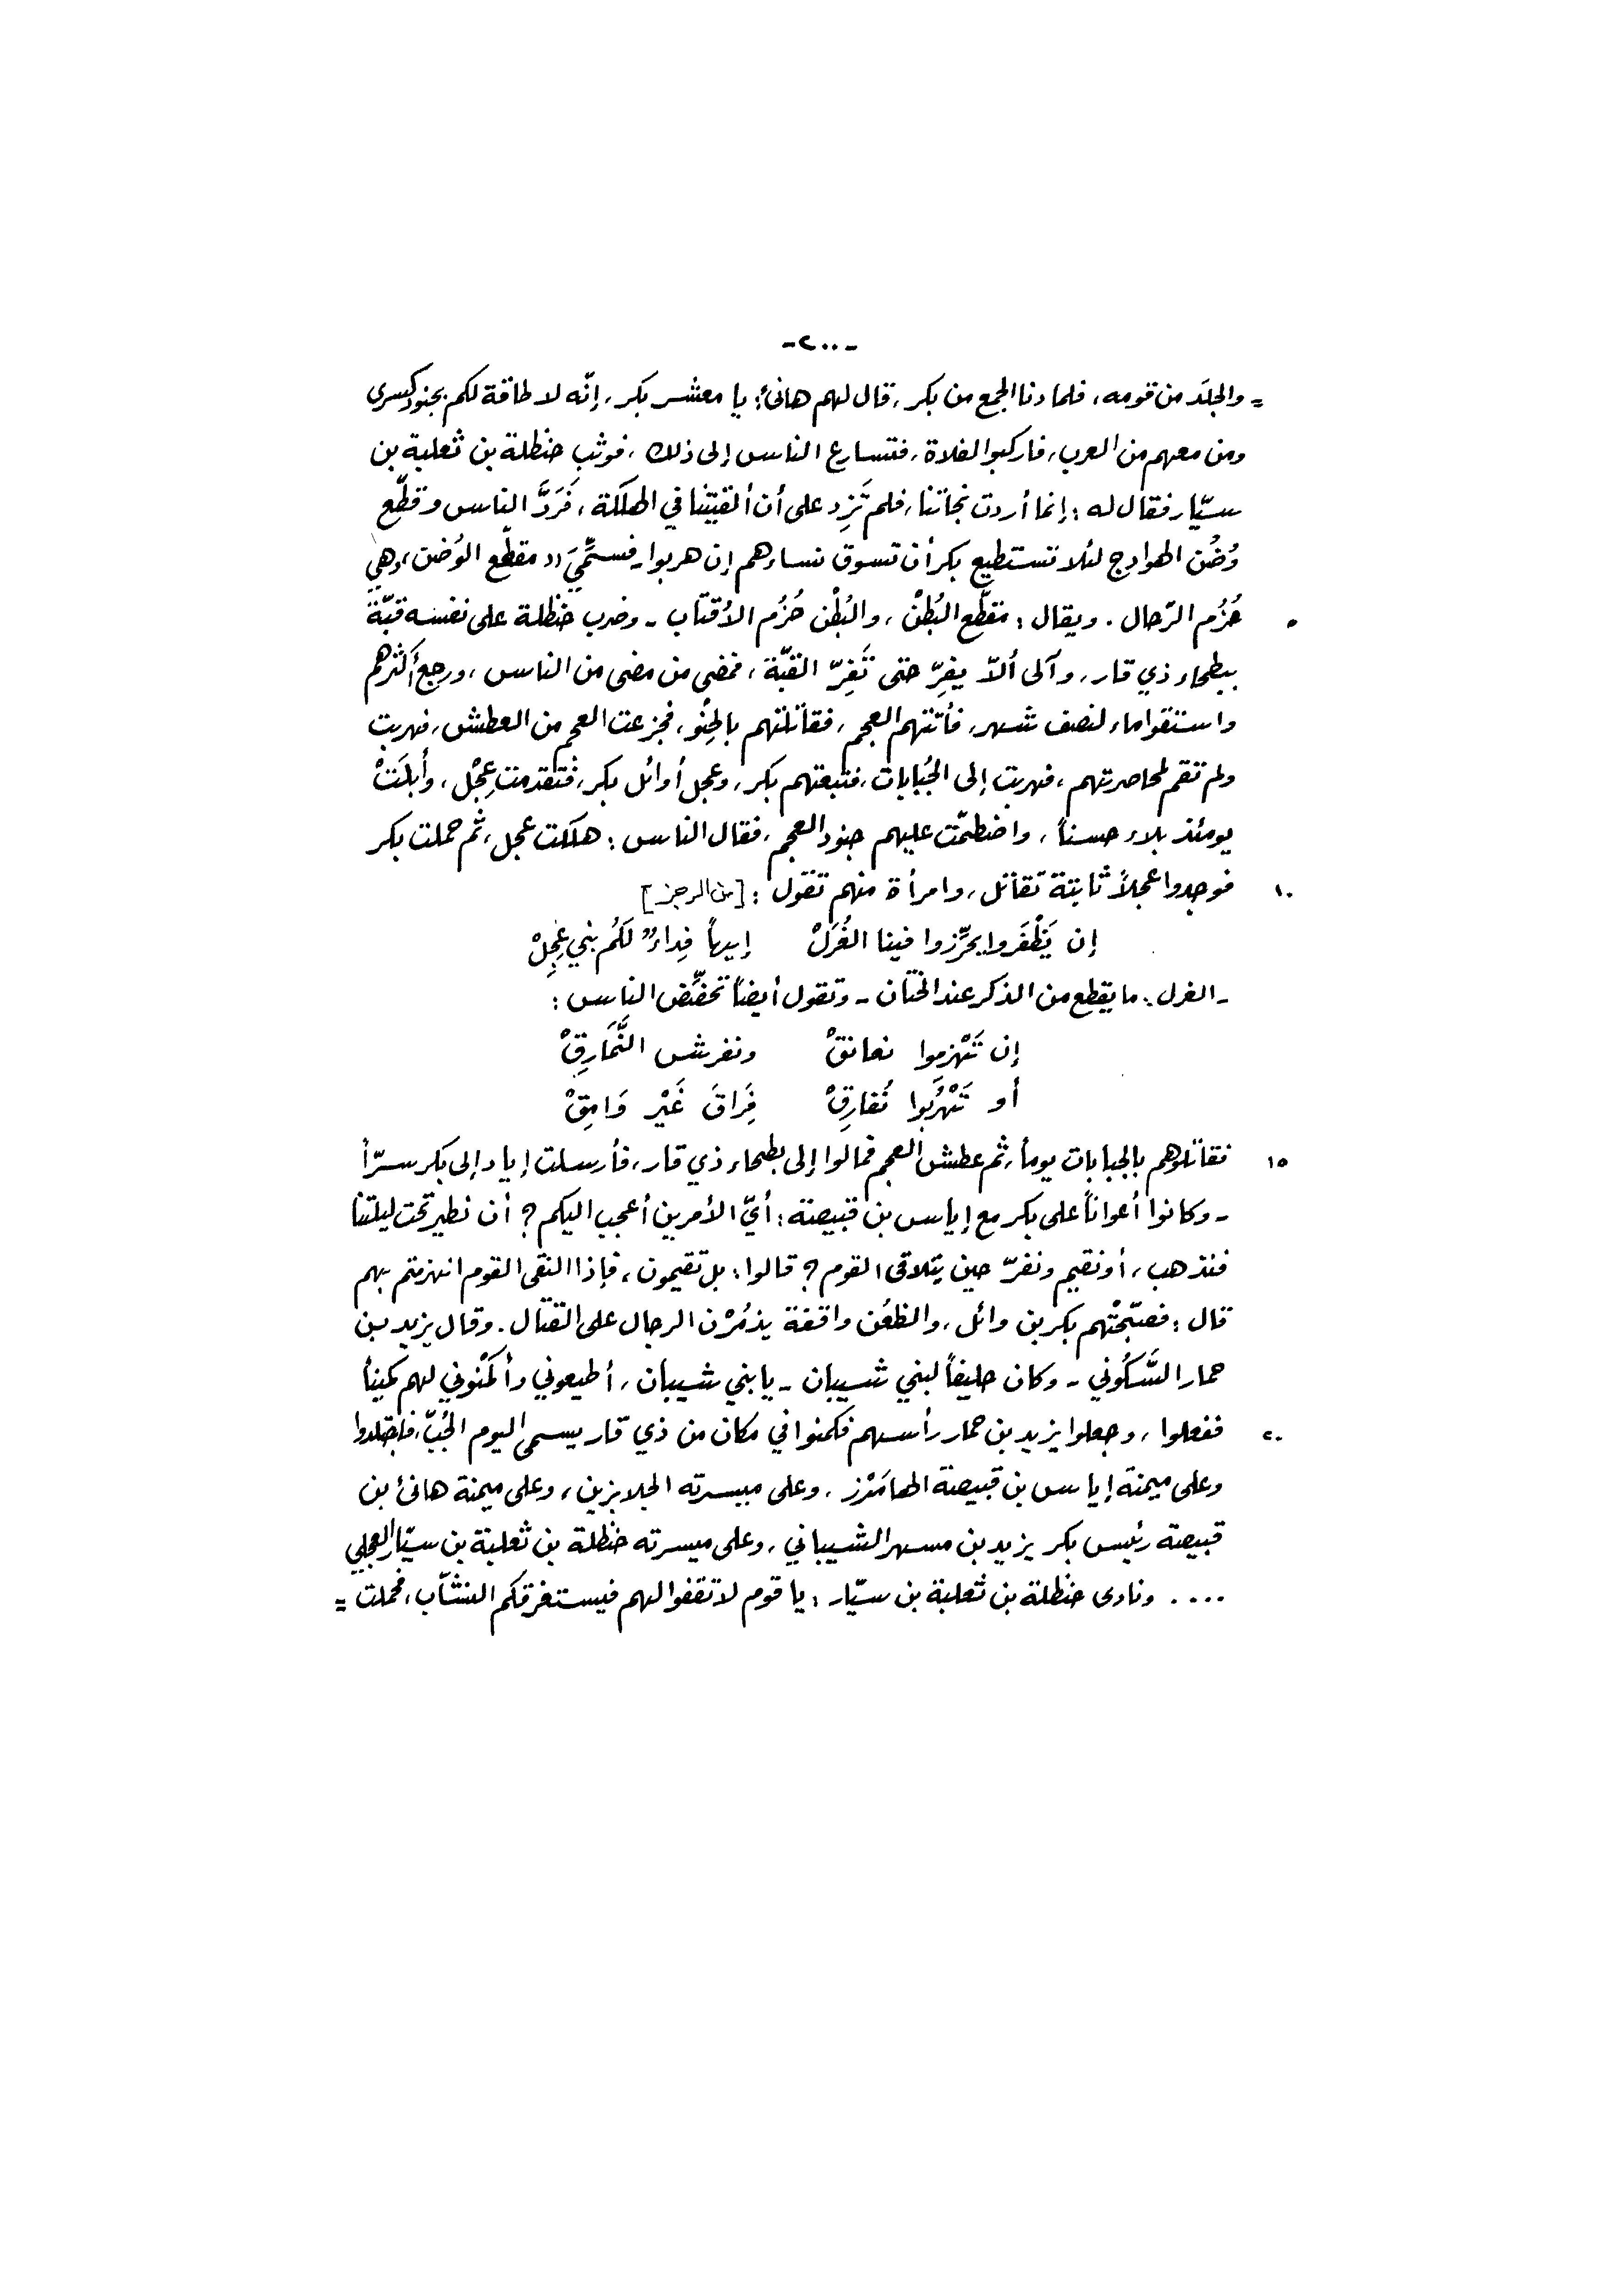 -٢٠٠-
= والجلَد من قومه، فلما دنا الجمع من بكر، قال لهم هانئ: يا معشر بكر، إنّه لا طاقة لكم بجنود كسرى
ومن معهم من العرب، فاركبوا الفلاة، فتسارع الناس إلى ذلك، فوثب حنظلة بن ثعلبة بن
سيّار فقال له: إنما أردت نجاتنا، فلم تَزِد على أن ألقيتنا في الهلكة، فَرَدَّ الناس وقطّع
وُضُن الهوادج لئلا تستطيع بكر أن تسوق نساءهم إن هربوا ـ فسمِّيَ «مقطّع الوُضن، وهي
٥ حُزُم الرّحال. ويقال: مقطّع البُطْن، والبُطْن حُزُم الأقتاب ـ وضرب حنظلة على نفسه قبّة
ببطحاء ذي قار، وآلى ألاّ يفِرّ حتى تَفِرّ القبّة، فمضى من مضى من الناس، ورجع أكثرهم
واستقوا ماء لنصف شهر، فأتتهم العجم، فقاتلتهم بالحِنْو، فجزعت العجم من العطش، فهربت
ولم تقم لمحاصرتهم، فهربت إلى الجُبابات، فتبعتهم بكر، وعجل أوائل بكر، فتقدمت عِجْل، وأبلَتْ
يومئذ بلاء حسناً، واضطمّت عليهم جنود العجم، فقال الناس: هلكت عجل، ثم حملت بكر
١٠ فوجدوا عجلاً ثابتة تقاتل، وامرأة منهم تقول: [من الرجز]
إن يَظْفَروا يحرِّزوا فينا الغُرَلْ إيهاً فِداءٌ لَكُم بني عِجِلْ
ـ الغرل: ما يقطع من الذكر عند الختان ـ وتقول أيضاً تحضّض الناس:
إن تَهْزموا نعانقْ ونفرش النَّمَارِقْ
أو تَهْرُبوا نُفارِقْ فِرَاقَ غَيْر وَامِقْ
١٥ فقاتلوهم بالجبابات يوماً، ثم عطش العجم فمالوا إلى بطحاء ذي قار، فأرسلت إياد إلى بكر سرّاً
ـ وكانوا أعواناً على بكر مع إياس بن قبيصة: أيّ الأمرين أعجب اليكم؟ أن نطير تحت ليلتنا
فنذهب، أو نقيم ونفرّ حين يتلاقى القوم؟ قالوا: بل تقيمون، فإذا التقى القوم انهزمتم بهم
قال: فصبّحتْهم بكر بن وائل، والظعُن واقفة يذمُرْن الرجال على القتال. وقال يزيد بن
حمار السَّكُوني ـ وكان حليفاً لبني شيبان ـ يا بني شيبان، أطيعوني وأكمنوني لهم كميناً
٢٠ ففعلوا، وجعلوا يزيد بن حمار رأسهم فكمنوا في مكان من ذي قار يسمى اليوم الجُبّ، فاجتلدوا
وعلى ميمنة إياس بن قبيصة الهامَرْز، وعلى ميسرته الجلابزين، وعلى ميمنة هانئ بن
قبيصة رئيس بكر يزيد بن مسهر الشيباني، وعلى ميسرته حنظلة بن ثعلبة بن سيّار العجلي
.... ونادى حنظلة بن ثعلبة بن سيّار: يا قوم لا تقفوا لهم فيستغرقكم النشّاب، فحملت =